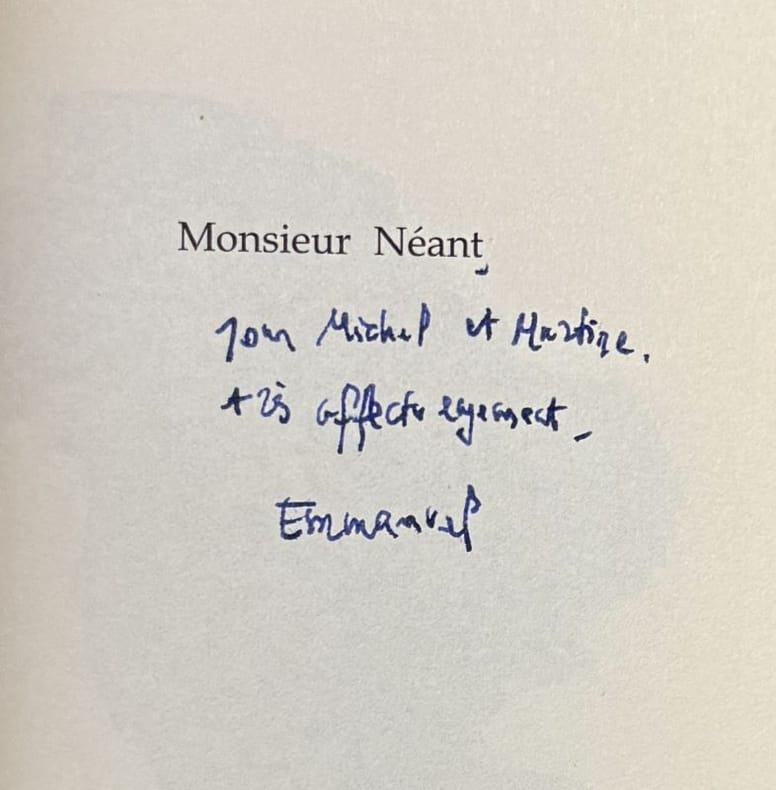 Monsieur Néant
pour Michel et Martine,
très affectueusement,
Emmanuel